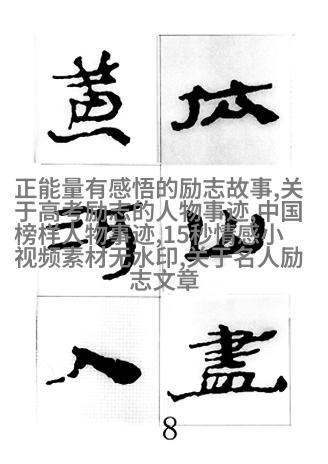 依山盡
黄河入
正能量有感悟的励志故事,关
于高考励志的人物事迹,中国
榜样人物事迹,15秒情感小
视频素材无水印,关于名人励
志文章
8